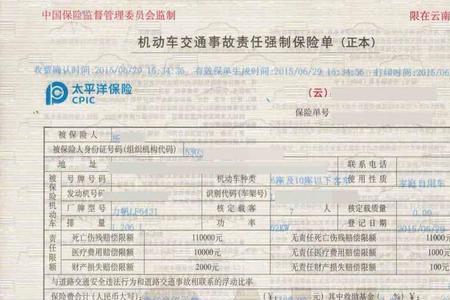 中国保险监督管理委员会监制
限在云南
机动车交通事故责任强制保险单 (正本)
收费确认时间:2015/06/29 16:34:56, 有效保单生成时间:2015/06/29 16:34:56,
太平洋保险
CPIC
(云)
保险单号
被保险人
被保险人身份证号码(组织机构代码) 530
地址 联系电话
被保险机动车
号牌号码 机动车种类 6座及10座以下客车 使用性质 家庭自用车
发动机号 识别代码(车架号)
厂牌型号 力帆LF6431 核定载客 7 人 核定载质量 0.00
排量 1.206 L 功率 62KW 登记日期 2015/06/29
责任限额
死亡伤残赔偿限额 110000元 无责任死亡伤残赔偿限额 11000
医疗费用赔偿限额 10000元 无责任医疗费用赔偿限额 1000元
财产损失赔偿限额 2000元 无责任财产损失赔偿限额 100元
与道路交通安全违法行为和道路交通事故相联系的浮动比率
保险费合计(人民币大写)